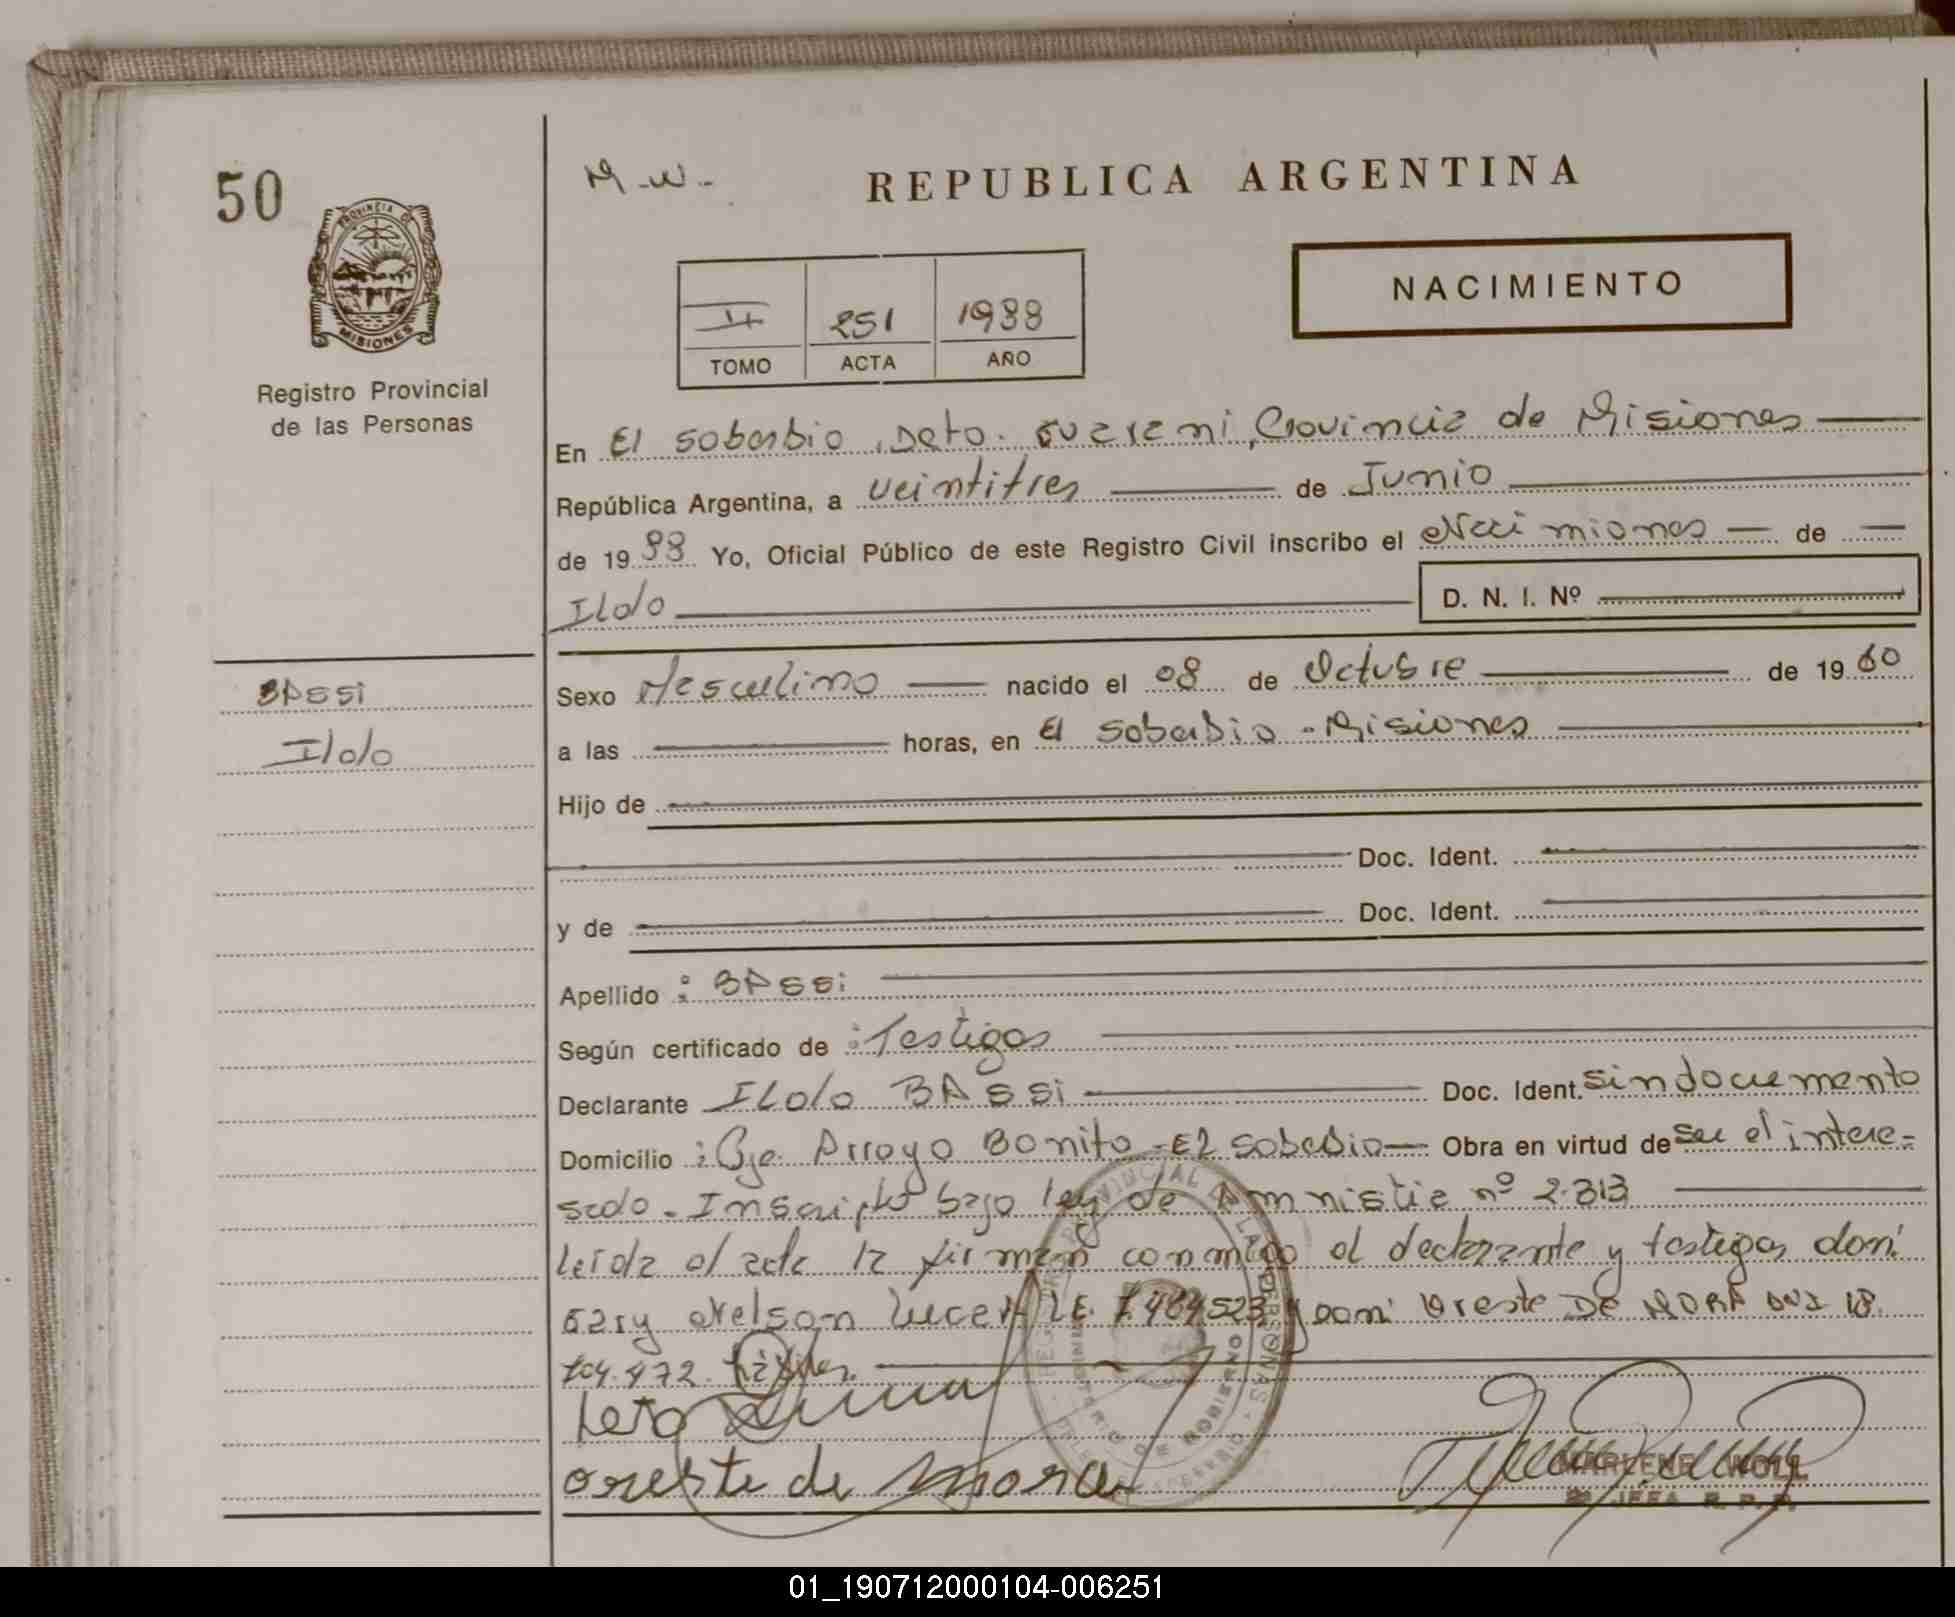 50
M.W.-
REPUBLICA ARGENTINA
PROVINCIA DE
MISIONES
NACIMIENTO
II 251 1988
TOMO ACTA AÑO
Registro Provincial
de las Personas
En El Soberbio, Dpto. Guarani, Provincia de Misiones
República Argentina, a veintitres de Junio
de 1988 Yo, Oficial Público de este Registro Civil inscribo el de
Ildo D. N. I. Nº
BASSi
Ildo
Sexo Masculino nacido el 08 de Octubre de 1960
a las horas, en El Soberbio - Misiones
Hijo de
Doc. Ident.
y de Doc. Ident.
Apellido : BASSi
Según certificado de : Testigos
Declarante ILdo BASSi Doc. Ident. sin documento
Domicilio : Arroyo Bonito - El Soberbio Obra en virtud de ser el intere-
sado. Inscripto bajo ley de Amnistia nº 2.313
Leida el acta la firman conmigo el declarante y testigos don:
Gary Nelson L.E. 7.464523 y don: Oreste DE MORA DNI 18.
704.472. Hábiles.
oreste de mora
MARLENE WOLL
JEFA R. P. P.
01_190712000104-006251